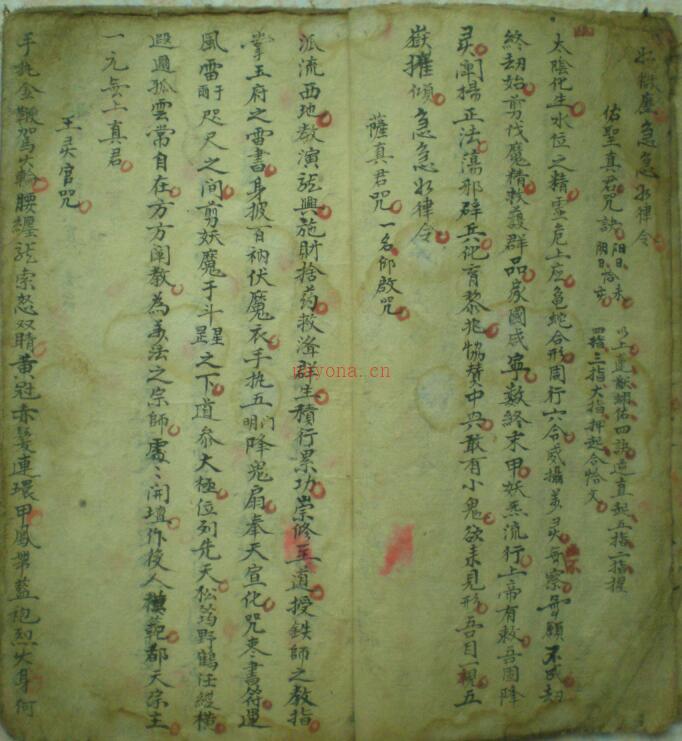 如微塵急急如律令
佑聖真君咒 訣 陽日 恰未 陰日 恰亥
以上連獻翊佑四訣造直起五指二指
四指三指大指押起合恰文
太陰化生水位之精虛危上应龜蛇合形周行六合威攝万灵無察無願不成劫
終劫始剪伐魔精救護群品家國咸寧数終末甲妖炁流行上帝有敕吾固降
灵闡揚正法蕩邪群兵化育黎兆協賛中兴敢有小鬼欲来見形吾目一視五
嶽摧傾急急如律令
薩真君咒 一名仰啟咒
派流西地教演龍興施財捨药救濟群生積行累功崇修至道授鉄師之教指
掌玉府之雷書身披百衲伏魔衣手执五明降鬼扇奉天宣化咒枣書符運
風雷于咫尺之间剪妖魔于斗罡之下道参太極位列先天松筠野鶴任縱橫
遐邇孤雲常自在方方闡教為万法之宗師處々開壇作後人模範都天宗主
一元無上真君
王灵官咒
手执金鞭駕火輪腰纏龍索怒双睛黄冠赤髮連環甲鳳帶藍袍烈火身何
nayona.cn